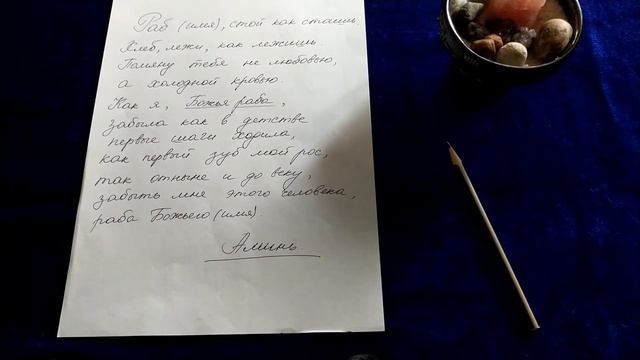 Раб (имя), стой как стоишь.
Хлеб, лежи, как лежишь.
Помяну тебе не любовью,
а холодной кровью.
Как я, Божья раба,
забыла как в детстве
первые шаги ходила,
как первый зуб мой рос,
так отныне и до веку,
забыть мне этого человека,
раба Божьего (имя).
Аминь